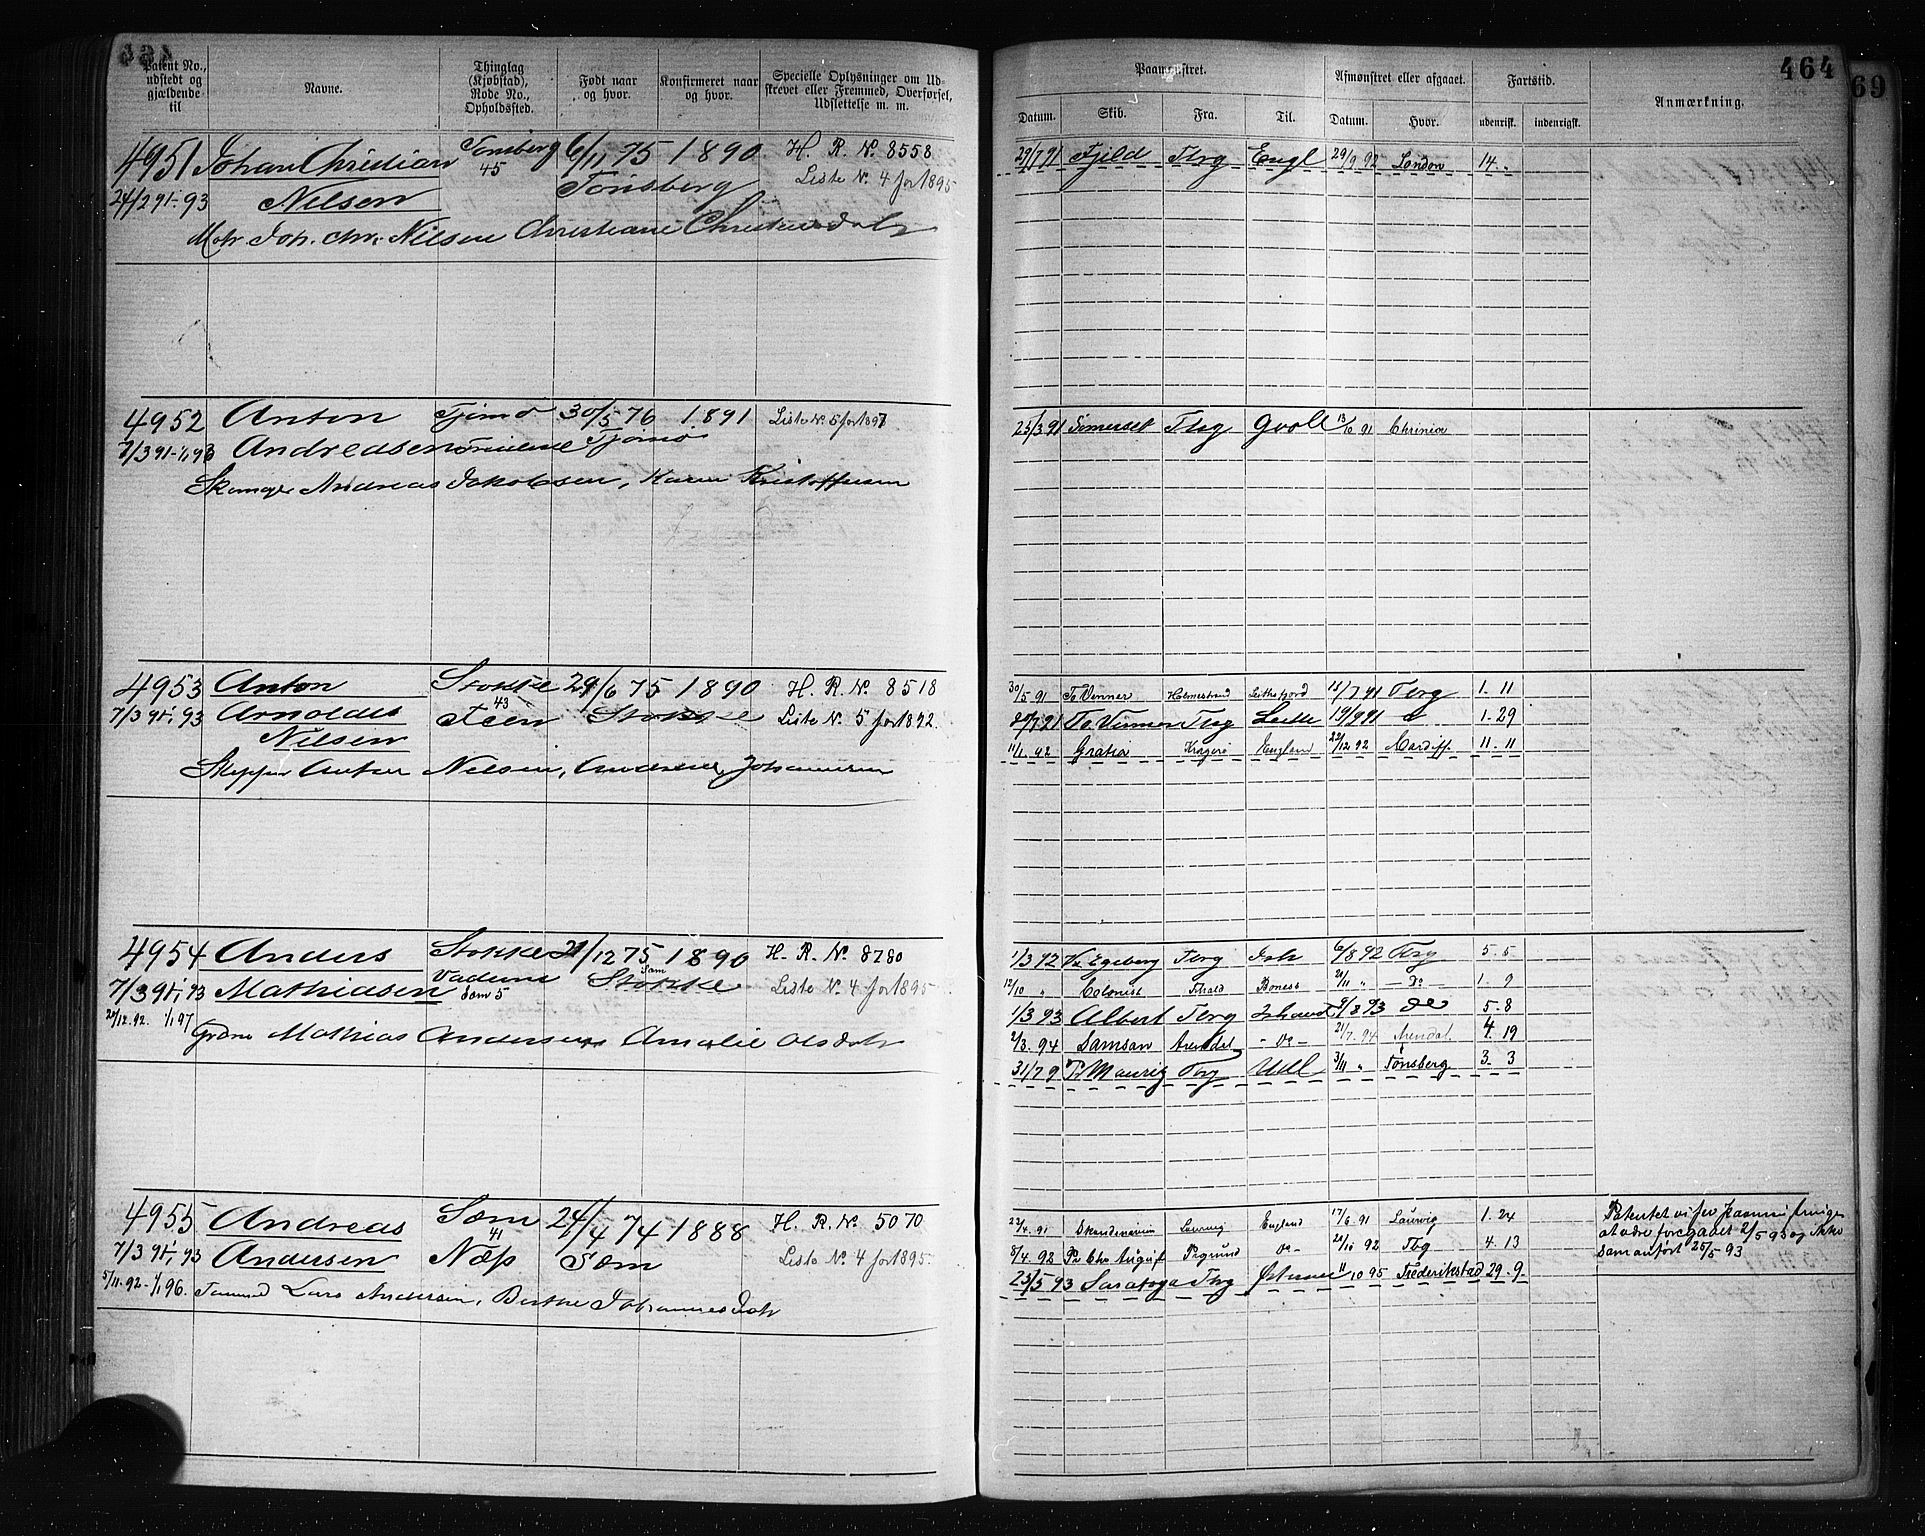 464
69
Patent No., udstedt og gjældende til
Navne.
Thinglag (Kjøbstad), Rode No., Opholdssted.
Født naar og hvor.
Konfirmeret naar og hvor.
Specielle Oplysninger om Udskrevet eller Fremmed, Overførsel, Udslettelse m. m.
Paamønstret.
Afmønstret eller afgaaet.
Fartstid.
Anmærkning.
Datum. Skib. Fra. Til. Datum. Hvor. udenrigsk. indenrigsk.
4951 Johan Christian Tønsberg 6/11 75 1890 H. R. No. 8558
45 Liste No. 4 for 1895
24/2 91 - 93 Nilsen Tønsberg
Joh. Chr. Nilsen Christiane Christensdatr
29/7 91 Fjeld Tbrg Engl 29/9 92 London 14 "
4952 Anton Tjømø 30/5 76 1891 Liste No. 5 for 1897
7/3 91 - 1/1 93 Andreasen Tjømø
Andreas Jakobsen, Karen Kristoffersen
25/3 91 Somerset Tbg Goole 13/10 91 Chrinia
4953 Anton Stokke 29/6 75 1890 H. R. No. 8518
7/3 91 - 1/1 93 Arnoldus 43 Feen Stokke Liste No. 5 for 1892
Nilsen
Skipper Anton Nilsen, Andrine Johannesen
30/5 91 To Venner Holmestrand Leithsfjord 11/7 91 Tbrg 1. 11
29/7 91 To Venner Tbg Leith 19/9 91 do 1. 29
11/1 92 Gratia Kragerø England 22/12 92 Cardiff 11. 11
4954 Anders Stokke 21/12 75 1890 H. R. No. 8780
7/3 91 - 1/1 93 Mathiasen Vadeine Sem 5 Stokke Sem Liste No. 4 for 1895
20/12. 92. 1/1 97 Mathias Andersen Amalie Olsdatr
1/3 92 Egeberg Tbrg Ish 6/8 92 Tbrg 5. 5
12/10 " Colonist Fhald Boness 21/11 " do 1. 9
1/3 93 Albert Tbrg Ishavet 9/8 93 do 5. 8
2/3. 94 Samson Arendal - do - 21/7. 94 Arendal 4. 19
31/7 9 Pr Mauritz Tbg Udl 3/11 " Tønsberg 3. 3
4955 Andreas Sæm 24/4 74 1888 H. R. No. 5070
7/3 91 - 1/1 93 Andersen 41 Næs Sæm Liste No. 4 for 1895.
5/11. 92 - 1/1 96. Tømmermd Lars Andersen, Berthe Johannesdatr
22/4. 91 Skandinavien Laurvig England 17/6 91 Laurvig 1. 24
8/4. 92 Pr Chr August Prgrund do 20/10 92 Tbg 4. 13
25/5 93 Saratoga Tbrg Østersøen 11/10 95 Frederikstad 29. 9.
2/5 95 og ikke
som anført 25/5 93